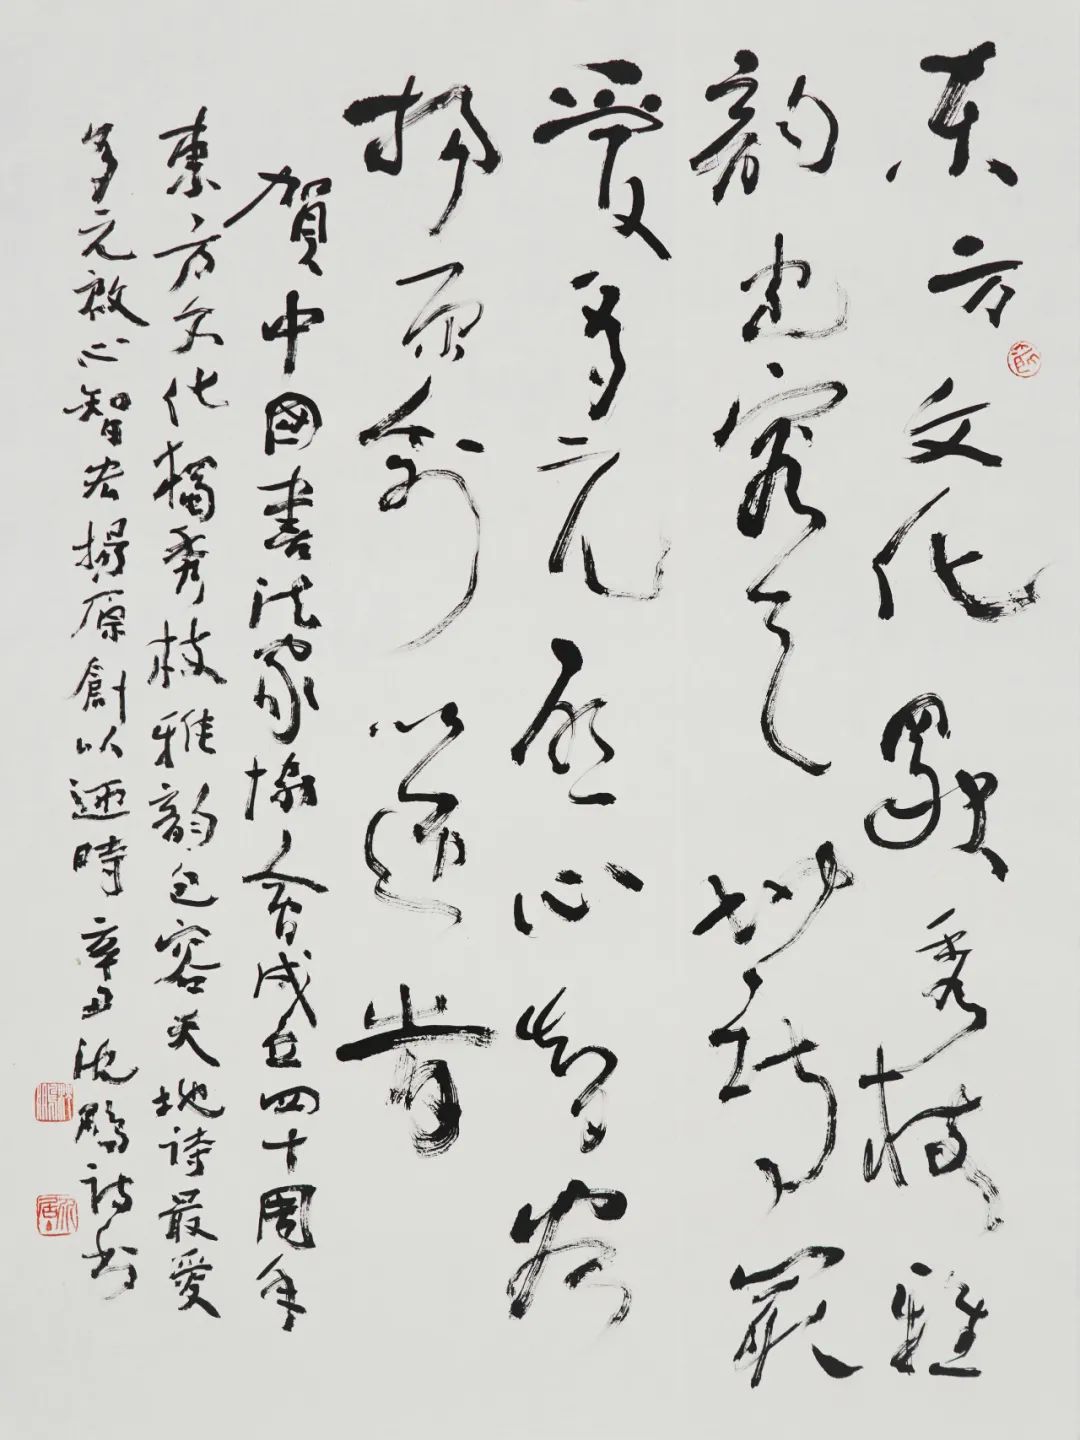 东方文化獨秀枝雅
韵包容天地詩最
愛多元启心智宏
揚原創以時
賀中國書法家協會成立四十周年
東方文化獨秀枝雅韵包容天地詩最愛
多元啟心智宏揚原創以時辛丑沈鵬詩书